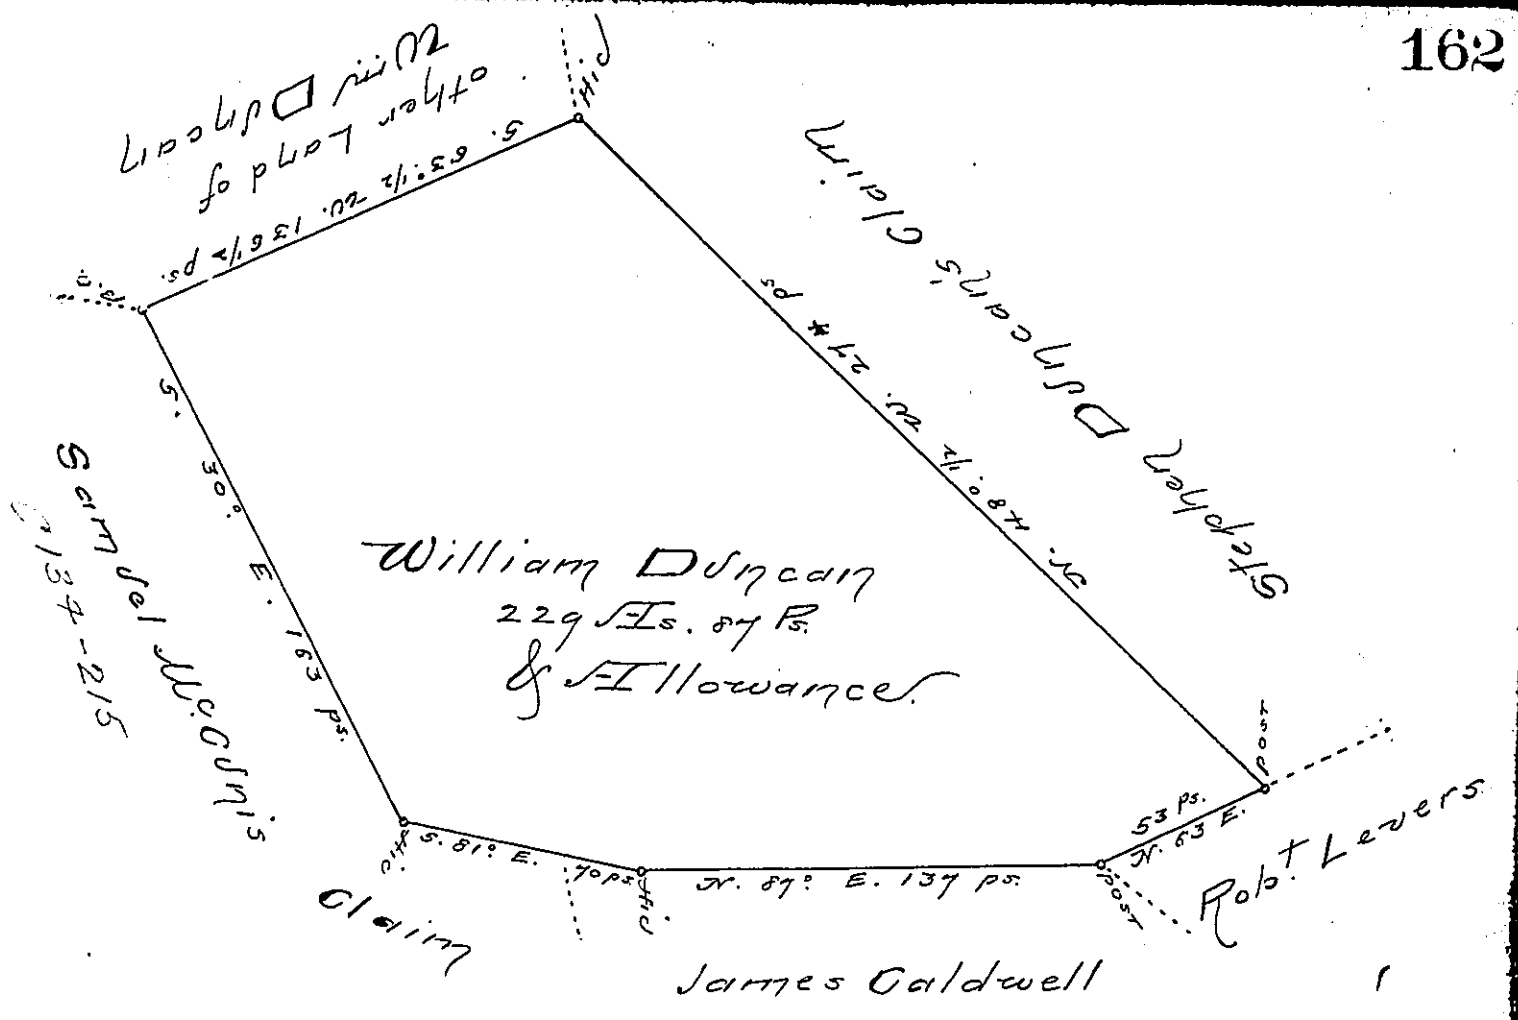 162
Other Land of
Wm Duncan
S. 63°.1/2 W. 136 1/2 ps.
Hic.
Stephen Duncan's Claim
N. 48°. 1/2 W. 274 ps
S. 30°. E. 163 ps.
Samuel McCunis
C 134-215
Claim
William Duncan
229 As. 87 Ps.
& Allowance.
Hic.
S. 81°. E. 70 ps.
Hic
N. 87°. E. 137 ps.
Post
53 ps.
N. 63 E.
Post
Robt. Levers
James Caldwell